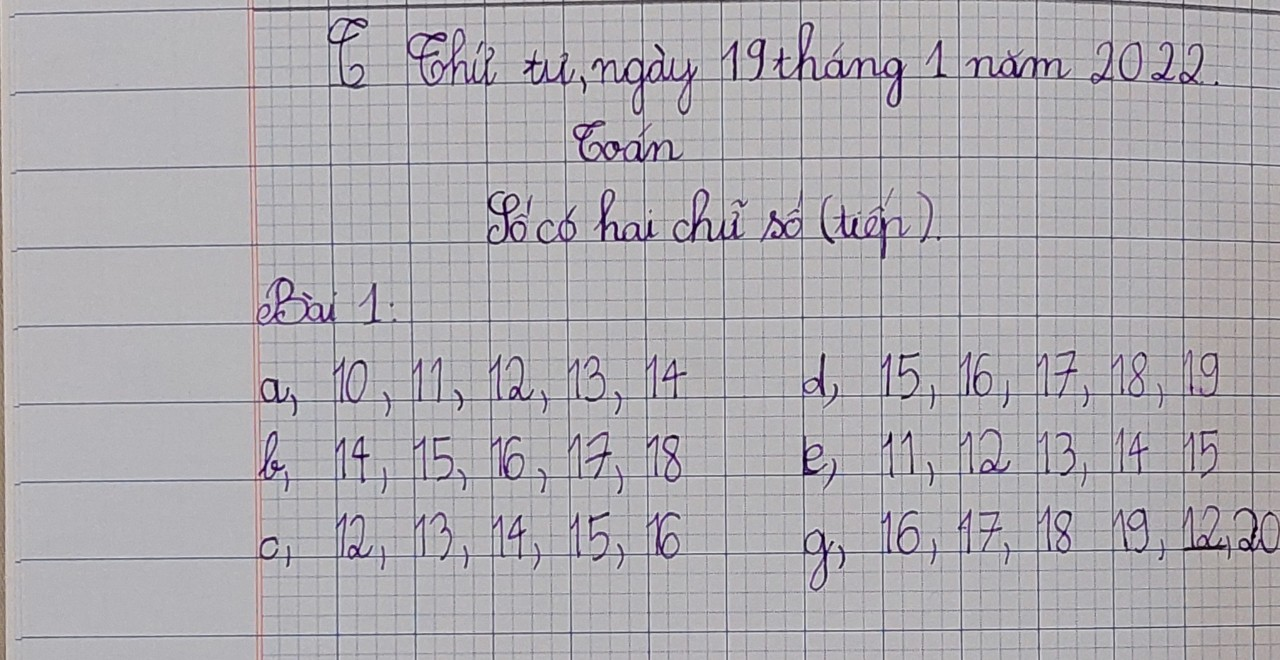 T Thứ tư, ngày 19 tháng 1 năm 2022.
Toán
Số có hai chữ số (tiếp).
Bài 1:
a, 10, 11, 12, 13, 14 d, 15, 16, 17, 18, 19
b, 14, 15, 16, 17, 18 e, 11, 12 13, 14 15
c, 12, 13, 14, 15, 16 g, 16, 17, 18 19, 12,20